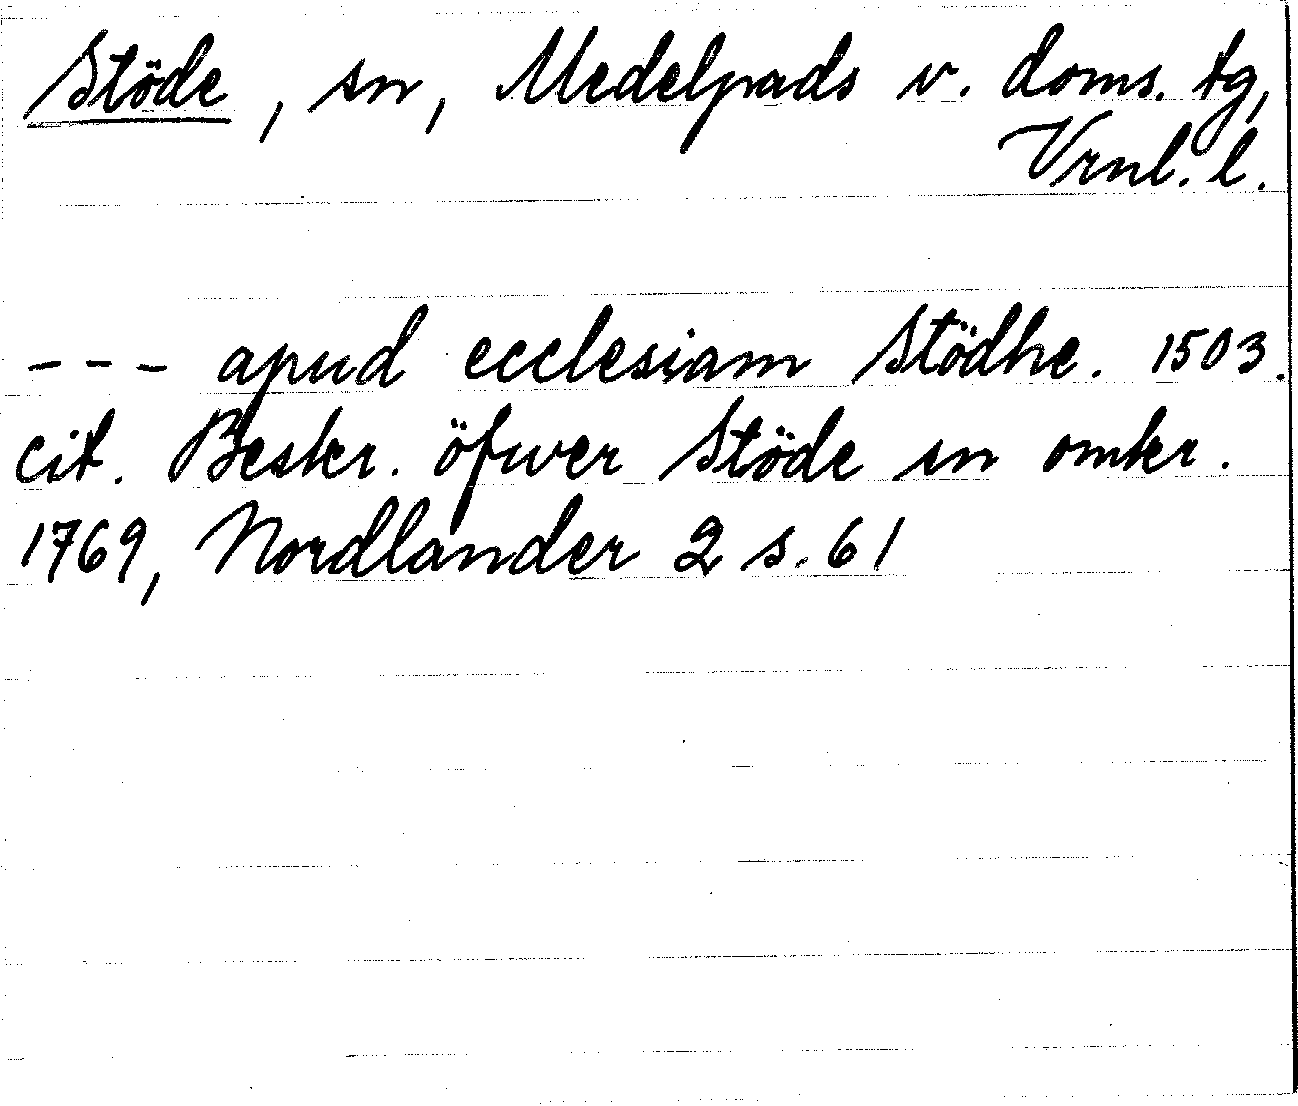 Stöde, sn, Medelpads v. doms. tg,
Vrnl. l.
--- apud ecclesiam Stödhe. 1503.
cit. Beskr. öfwer Stöde sn omkr.
1769, Nordlander 2 s. 61